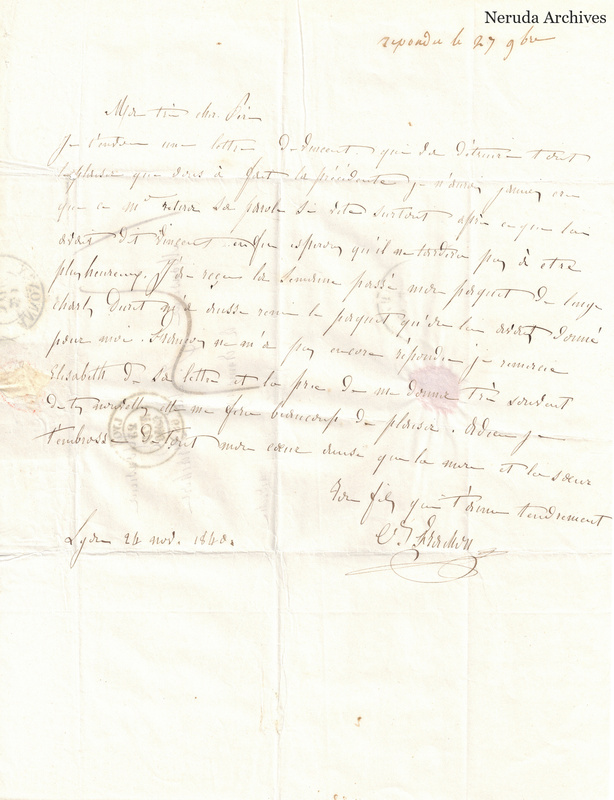 Neruda Archives
repondu le 27 9bre
Mon très cher Père
Je t'envoie une lettre de Vincent qui va détruire tout
le plaisir que vous à fait la précédente je n'aurai jamais cru
que ce Mr retira sa parole si vite surtout après ce que lui
avait dit Vincent enfin esperons qu'il ne tardera pas à etre
plus heureux. J'ai reçu la semaine passé mon paquet de linge
Charly Duret m'a aussi remis le paquet qu'on lui avait donné
pour moi. François ne m'a pas encore répondu je remercie
Elisabeth de sa lettre et la prie de me donner très souvent
de tes nouvelles elle me fera beaucoup de plaisir. Adieu je
t'embrasse de tout mon cœur ainsi que la mère et la sœur
Ton fils qui t'aime tendrement
Lyon 24 nov. 1840.